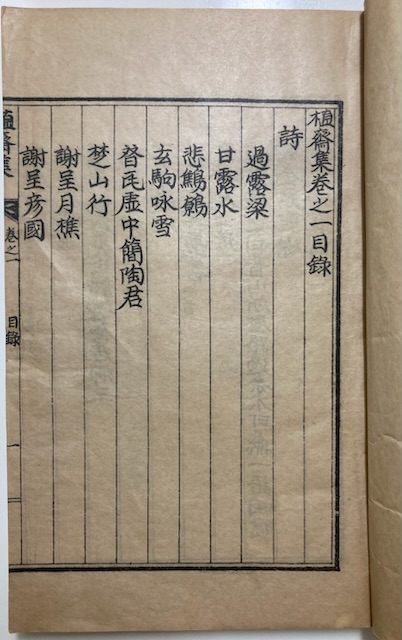 榲齋集卷之一目錄
詩
過露梁
甘露水
悲鷦鷯
玄駒咏雪
虛中簡陶君
椘山行
謝呈月樵
謝呈彦國
齋集
卷之一
目錄
一